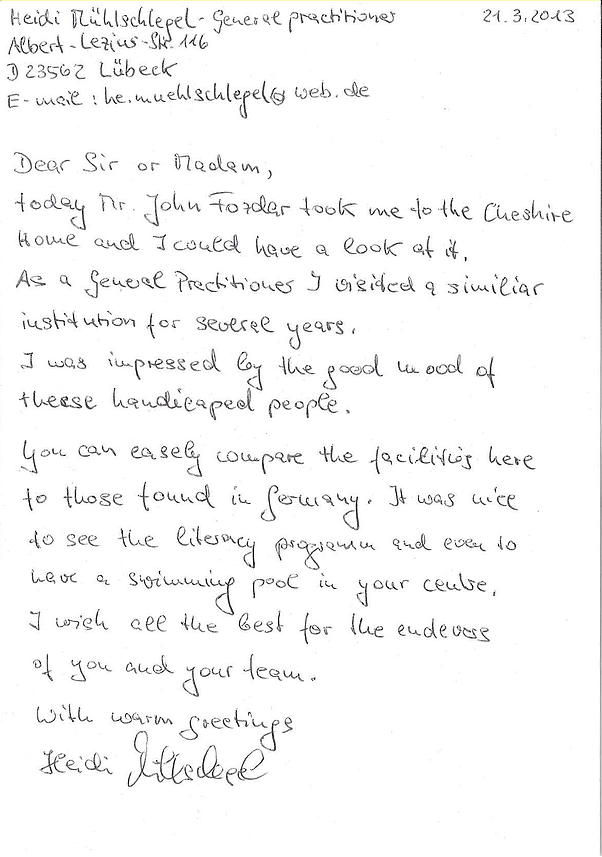 Heidi Mühlschlegel - General practitioner 21.3.2013
Albert-Lezius-Str. 116
D 23562 Lübeck
E-mail : he.muehlschlegel@web.de
Dear Sir or Madam,
today Mr. John Fozdar took me to the Cheshire
Home and I could have a look at it.
As a General Practitioner I visited a similiar
institution for several years.
I was impressed by the good mood of
theese handicaped people.
You can easely compare the facilities here
to those found in Germany. It was nice
to see the literacy programm and even to
have a swimming pool in your centre.
I wish all the best for the endevors
of you and your team.
With warm greetings
Heidi Mühlschlegel